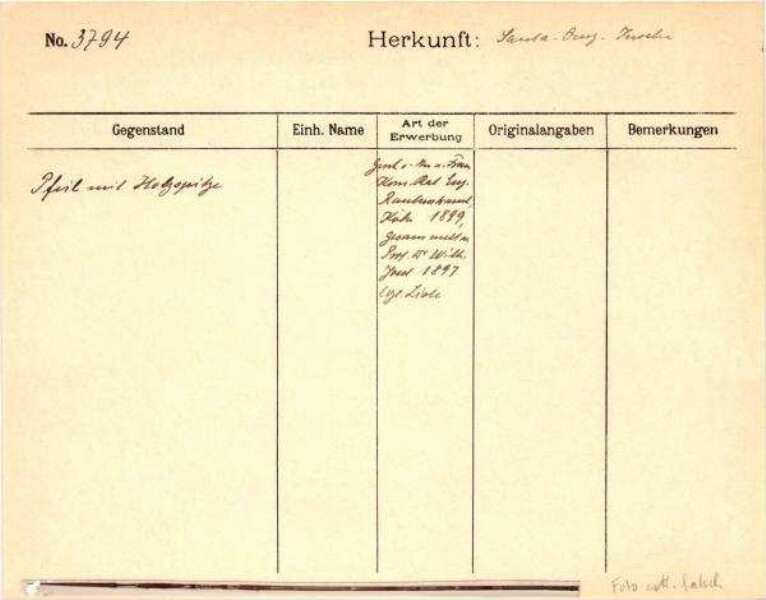 No. 3794
Herkunft: Santa-Cruz-Inseln
Gegenstand
Einh. Name
Art der Erwerbung
Originalangaben
Bemerkungen
Pfeil mit Holzspitze
Gesch. v. Frau
Kom. Rat Eug.
Rautenstrauch
Köln 1899,
gesammelt v.
Prof. Dr Wilh.
Joest 1897
Foto falsch